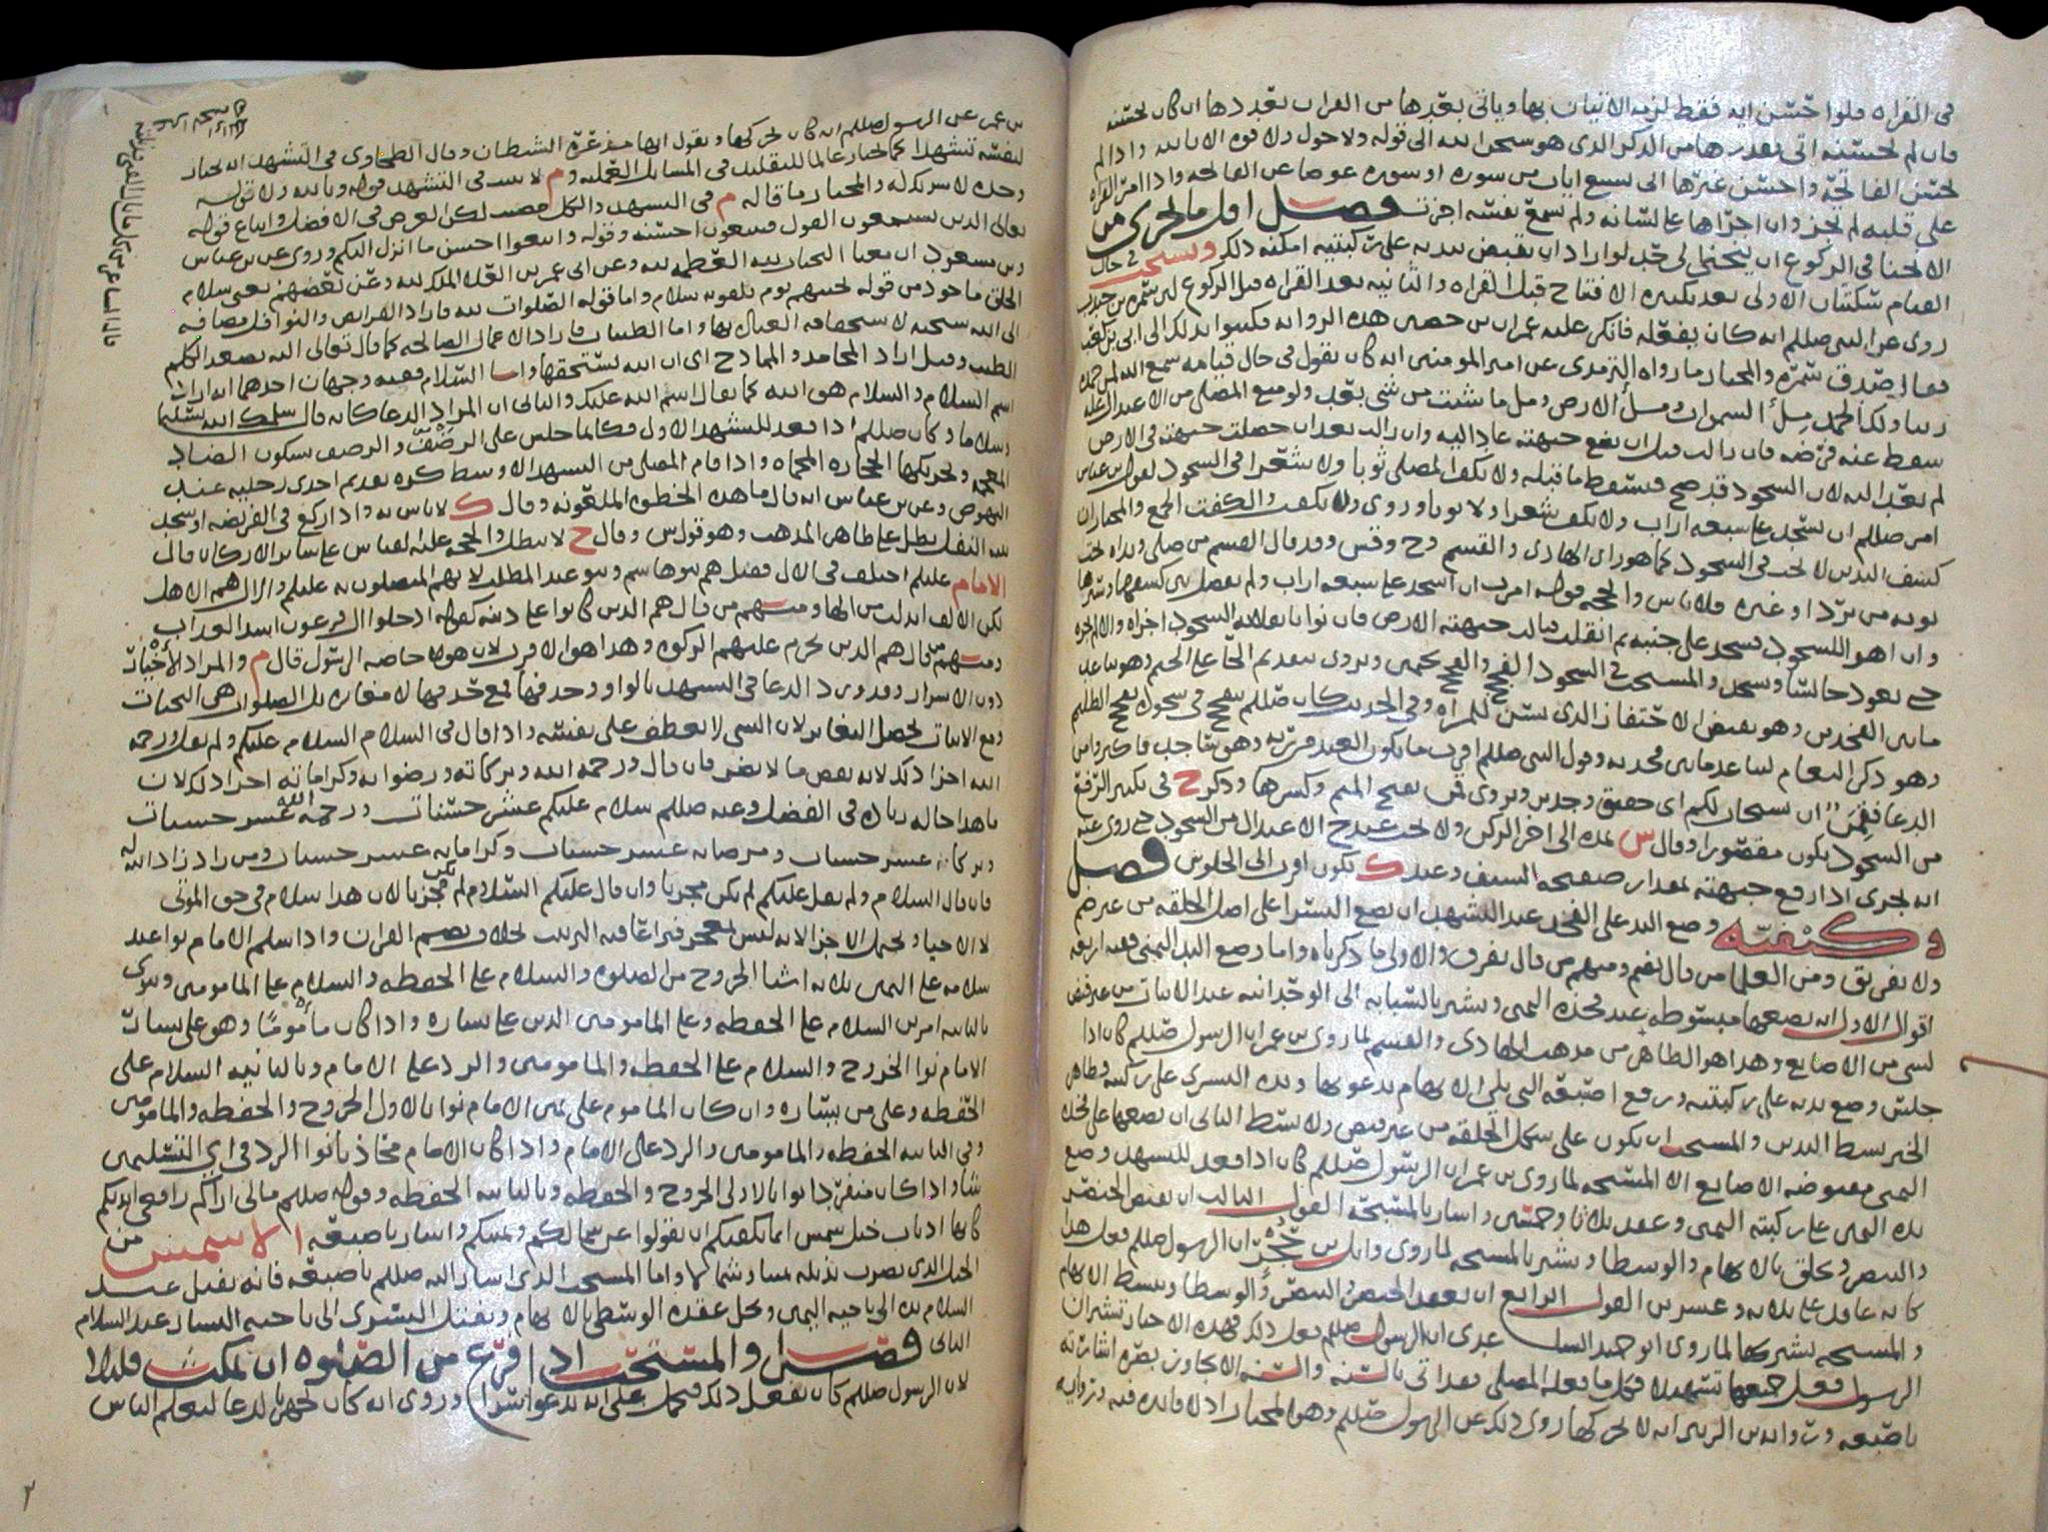 في القراه فلو احسن ايه فقط لزمه الاتيان بها وياتي بغيرها من القران بعددها ان كان يحسنه
فان لم يحسنه اتى بعدرها من الذكر الذي هو سبحن الله الى قوله ولا حول ولا قوه الا بالله واذا لم
يحسن الفاتحه واحسن غيرها اتى بسبع ايات من سوره او سوره عوضا عن الفاتحه واذا امر القراه
على قلبه لم تجز وان اجراها على لسانه ولم يسمع نفسه اجزت فصل اقل ما يجزي من
الانحنا في الركوع ان ينحني الى حد لو اراد ان يقبض بيديه على ركبتيه امكنه ذلك ويستحب في حال
القيام سكتتان الاولى بعد تكبيره الافتتاح قبل القراه والثانيه بعد القراه قبل الركوع لان سمره بن جندب
روى عن النبي صللم انه كان يفعله فانكر عليه عمران بن حصين هذه الروايه فكتبوا بذلك الى ابي بن كعب
فقال صدق سمره والمختار ما رواه الترمذي عن امير المومنين انه كان يقول في حال قيامه سمع الله لمن حمده
ربنا ولك الحمد ملأ السموات وملأ الارض ومل ما شئت من شي بعد ولو منع المصلي من الاعتدال عله
سقط عنه فرضه فان زالت قبل ان يضع جبهته عاد اليه وان زالت بعد ان حصلت جبهته في الارض
لم يعد اليه لان السجود قد صح فسقط ما قبله ولا يكف المصلي ثوبا ولا شعرا في السجود لقول بن عباس
امر صللم ان يسجد على سبعه اراب ولا يكف شعرا ولا ثوبا وروي ولا يكفت والكفت الجمع والمختار ان
كشف اليدين لا يجب في السجود كما هو راي الهادي والقسم وح وقس وقد قال القسم من صلى ويداه تحت
ثوبه من برد او غيره فلا باس والحجه قوله امرت ان اسجد على سبعه اراب ولم يفصل بين كشفها وسترها
وان اهوا للسجود فسجد على جنبه ثم انقلب فنالت جبهته الارض فان نوا بانقلابه السجود اجزاه والا لم يجزه
حتى يعود جالسا ويسجد والمستحب في السجود الفجج والفجج بجيمين ويروى بتقديم الحا على الجيم وهو تباعد
ما بين الفخذين وهو نقيض الاحتفاز الذي يسن للمراه وفي الحديث كان صللم يفجج في سجوده تفجج الظليم
وهو ذكر النعام لتباعد ما بين فخذيه وقول النبي صللم اقرب ما يكون العبد من ربه وهو ساجد فاكثروا من
الدعا فقمن ان يستجاب لكم اي حقيق وجدير ويروى قمن بفتح الميم وكسرها وذكر ح في تكبير الرفع
من السجود يكون مقصورا وقال س يمده الى اخر الركن ولا يجب عند ح الاعتدال من السجود حتى روي عنه
انه يجزي اذا رفع جبهته مقدار صفحه السيف وعند ك يكون اقرب الى الجلوس فصل
وكيفيه وضع اليد على الفخذ عند التشهد ان يضع اليسرا على اصل الخلقه من غير ضم
ولا تفريق ومن العلما من قال يضم ومنهم من قال يفرق والاولى ما ذكرناه واما وضع اليد اليمنى ففيه اربعه
اقوال الاول انه يضعها مبسوطه عند فخذه اليمنى ويشير بالسبابه الى الوحدانيه عند الاثبات من غير قبض
لشي من الاصابع وهذا هو الظاهر من مذهب الهادي والقسم لما روى بن عمر ان الرسول صللم كان اذا
جلس وضع يديه على ركبتيه ورفع اصبعه التي يلي الابهام يدعو بها ويده اليسرى على ركبته وظاهر
الخبر بسط اليدين والمستحب ان يكون على شكل الخلقه من غير قبض ولا بسط الثاني ان يضعها على فخذه
اليمنى مقبوضه الاصابع الا المسبحه لما روى بن عمر ان الرسول صللم كان اذا قعد للتشهد وضع
يده اليمنى على ركبته اليمنى وعقد ثلاثا وخمسين واشار بالمسبحه القول الثالث ان يقبض الخنصر
والبنصر ويحلق بالابهام والوسطا ويشير بالمسبحه لما روى وائل بن حجر ان الرسول صللم فعل هذا
كانه عاقد على ثلاثه وعشرين القول الرابع ان يعقد الخنصر والبنصر والوسطا ويبسط الابهام
والمسبحه يشير بها لما روى ابو حميد الساعدي ان الرسول صللم فعل ذلك فهذه الاخبار تشير ان
الرسول فعل جميعها تشهدا فكل ما فعله المصلي فقد اتى بالسنه والسنه الا يجاوز بصره اشارته
باصبعه وروى بن الزبير انه لا يحركها روى ذلك عن الرسول صللم وهو المختار اذ لا فائده فيه وروايه
بن عمر عن الرسول صللم انه كان يحركها ويقول انها مذعرة الشيطان وقال الطحاوي في التشهد انه يختار
لنفسه تشهدا كما يختار عالما للتقليد في المسايل العمليه وم لا يثبت في التشهد قوله وبالله ولا قوله
وحده لا شريك له والمختار ما قاله م في التشهد والكل مصيب لكن الغرض في الافضل واتباع قوله
تعالى الذين يستمعون القول فيتبعون احسنه وقوله واتبعوا احسن ما انزل اليكم وروي عن بن عباس
وبن مسعود ان معنا التحيات لله العظمه لله وعن ابي عمرو بن العلا الملك لله وعن بعضهم يعني سلام
الخلق ماخوذ من قوله تحيتهم يوم يلقونه سلام واما قوله الصلوات لله فاراد الفرايض والنوافل مضافه
الى الله سبحنه لاستحقاقه العباده بها واما الطيبات فاراد الاعمال الصالحه كما قال تعالى اليه يصعد الكلم
الطيب وقيل اراد المحامد والممادح اي ان الله يستحقها واما السلام ففيه وجهان احدهما انه اراد
اسم السلام والسلام هو الله كما يقال اسم الله عليك والثاني ان المراد الدعا كانه قال سلمك الله تسليما
وسلاما وكان صللم اذا قعد للتشهد الاول فكانما جلس على الرضف والرضف بسكون الضاد
المعجمه وتحريكها الحجاره المحماه واذا قام المصلي من التشهد الاوسط كره تقديم احدى رجليه عند
النهوض وعن بن عباس انه قال ما هذه الخطوه الملعونه وقال ك لا باس به واذا ركع في الفريضه او سجد
بنيه النفل بطل على ظاهر المذهب وهو قول س وقال ح لا يبطل والحجه عليه القياس على ساير الاركان قال
الامام عليلم اختلف في الال فقيل هم بنو هاشم وبنو عبد المطلب لانهم المتصلون به عليلم والال هم الاهل
لكن الالف ابدلت من الها ومنهم من قال هم الذين كانوا على دينه كقوله ادخلوا ال فرعون اشد العذاب
ومنهم من قال هم الذين تحرم عليهم الزكوه وهذا هو الاقرب لان هولا خاصه الرسول قال م والمراد الاخيار
دون الاشرار وقد ورد الدعا في التشهد بالواو وحذفها فمع حذفها لا مغايره بل الصلوات هي التحيات
ومع الاثبات يحصل التغاير لان الشي لا يعطف على نفسه واذا قال في السلام السلام عليكم ولم يقل ورحمه
الله اجزا ذلك لانه نقص ما لا يضر فان قال ورحمه الله وبركاته ورضوانه وكراماته اجزا ذلك لان
ما هذا حاله زياده في الفضل وعنه صللم سلام عليكم عشر حسنات ورحمه الله عشر حسنات
وبركاته عشر حسنات ومرضاته عشر حسنات وكراماته عشر حسنات ومن زاد زاد الله له
فان قال السلام ولم يقل عليكم لم يكن مجزيا وان قال عليكم السلام لم يكن مجزيا لان هذا سلام في حق الموتى
لا الاحيا ويحتمل الاجزا لانه ليس بمعجز فيراعا فيه الترتيب بخلاف نظم القران واذا سلم الامام نوا عند
سلامه على اليمين ثلاثه اشيا الخروج من الصلوه والسلام على الحفظه والسلام على المامومين وينوي
بالثانيه امرين السلام على الحفظه وعلى المامومين الذين على يساره واذا كان مأمومًا وهو على يسار
الامام نوا الخروج والسلام على الحفظه والمامومين والرد على الامام وبالثانيه السلام على
الحفظه وعلى من يساره وان كان الماموم على يمين الامام نوا بالاولى الخروج والحفظه والمامومين
وفي الثانيه الحفظه والمامومين والرد على الامام واذا كان الامام محاذيا نوا الرد في اي التسليمتين
شا واذا كان منفردا نوا بالاولى الخروج والحفظه وبالثانيه الحفظه وقوله صللم مالي اراكم رافعي ايديكم
كانها اذناب خيل شمس انما يكفيكم ان تقولوا عن شمالكم ويمينكم واشار باصبعه الاشمس من
الخيل الذي يضرب بذيله يمينا وشمالا واما المسبحه الذي اشار اليه صللم باصبعه فانه يفتل عند
السلام يده الى ناحيه اليمين ويحل عقده الوسطى بالابهام ويفتل اليسرى الى ناحيه اليسار عند السلام
الثاني فصل والمستحب اذا فرغ من الصلوه ان يمكث قليلا
لان الرسول صللم كان يفعل ذلك فيحمل على انه يدعو سرا وروي انه كان يجهر بالدعا ليعلم الناس